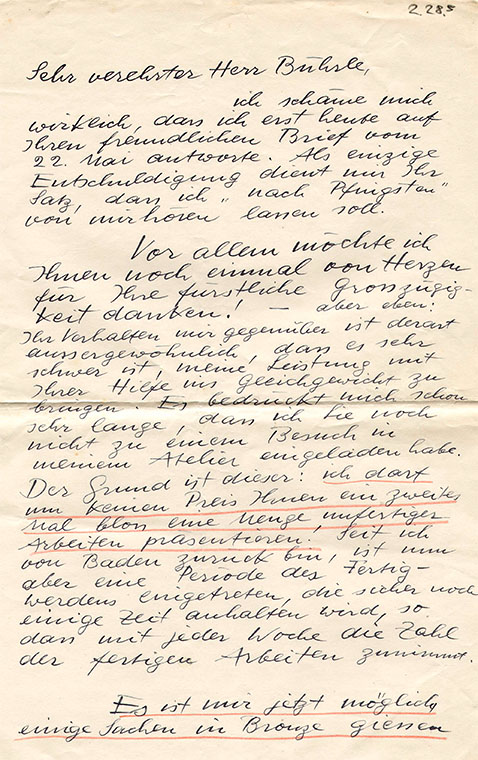 2.28.5
Sehr verehrter Herr Bührle,
ich schäme mich
wirklich, dass ich erst heute auf
Ihren freundlichen Brief vom
22. Mai antworte. Als einzige
Entschuldigung dient mir Ihr
Satz, dass ich „nach Pfingsten"
von mir hören lassen soll.
Vor allem möchte ich
Ihnen noch einmal von Herzen
für Ihre fürstliche Grosszügig-
keit danken! – aber eben:
Ihr Verhalten mir gegenüber ist derart
aussergewöhnlich, dass es sehr
schwer ist, meine Leistung mit
Ihrer Hilfe ins Gleichgewicht zu
bringen. Es bedrückt mich schon
sehr lange, dass ich Sie noch
nicht zu einem Besuch in
meinem Atelier eingeladen habe.
Der Grund ist dieser: ich darf
um keinen Preis Ihnen ein zweites
Mal bloss eine Menge unfertiger
Arbeiten präsentieren. Seit ich
von Baden zurück bin, ist nun
aber eine Periode des Fertig-
werdens eingetreten, die sicher noch
einige Zeit anhalten wird, so
dass mit jeder Woche die Zahl
der fertigen Arbeiten zunimmt.
Es ist mir jetzt möglich,
einige Sachen in Bronze giessen